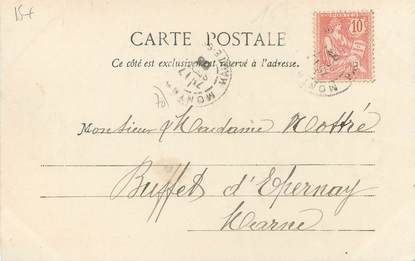 15+
CARTE POSTALE
Ce côté est exclusivement réservé à l'adresse.
10c
POSTES
70
Monsieur & Madame Mottré
Buffet d'Epernay
Marne